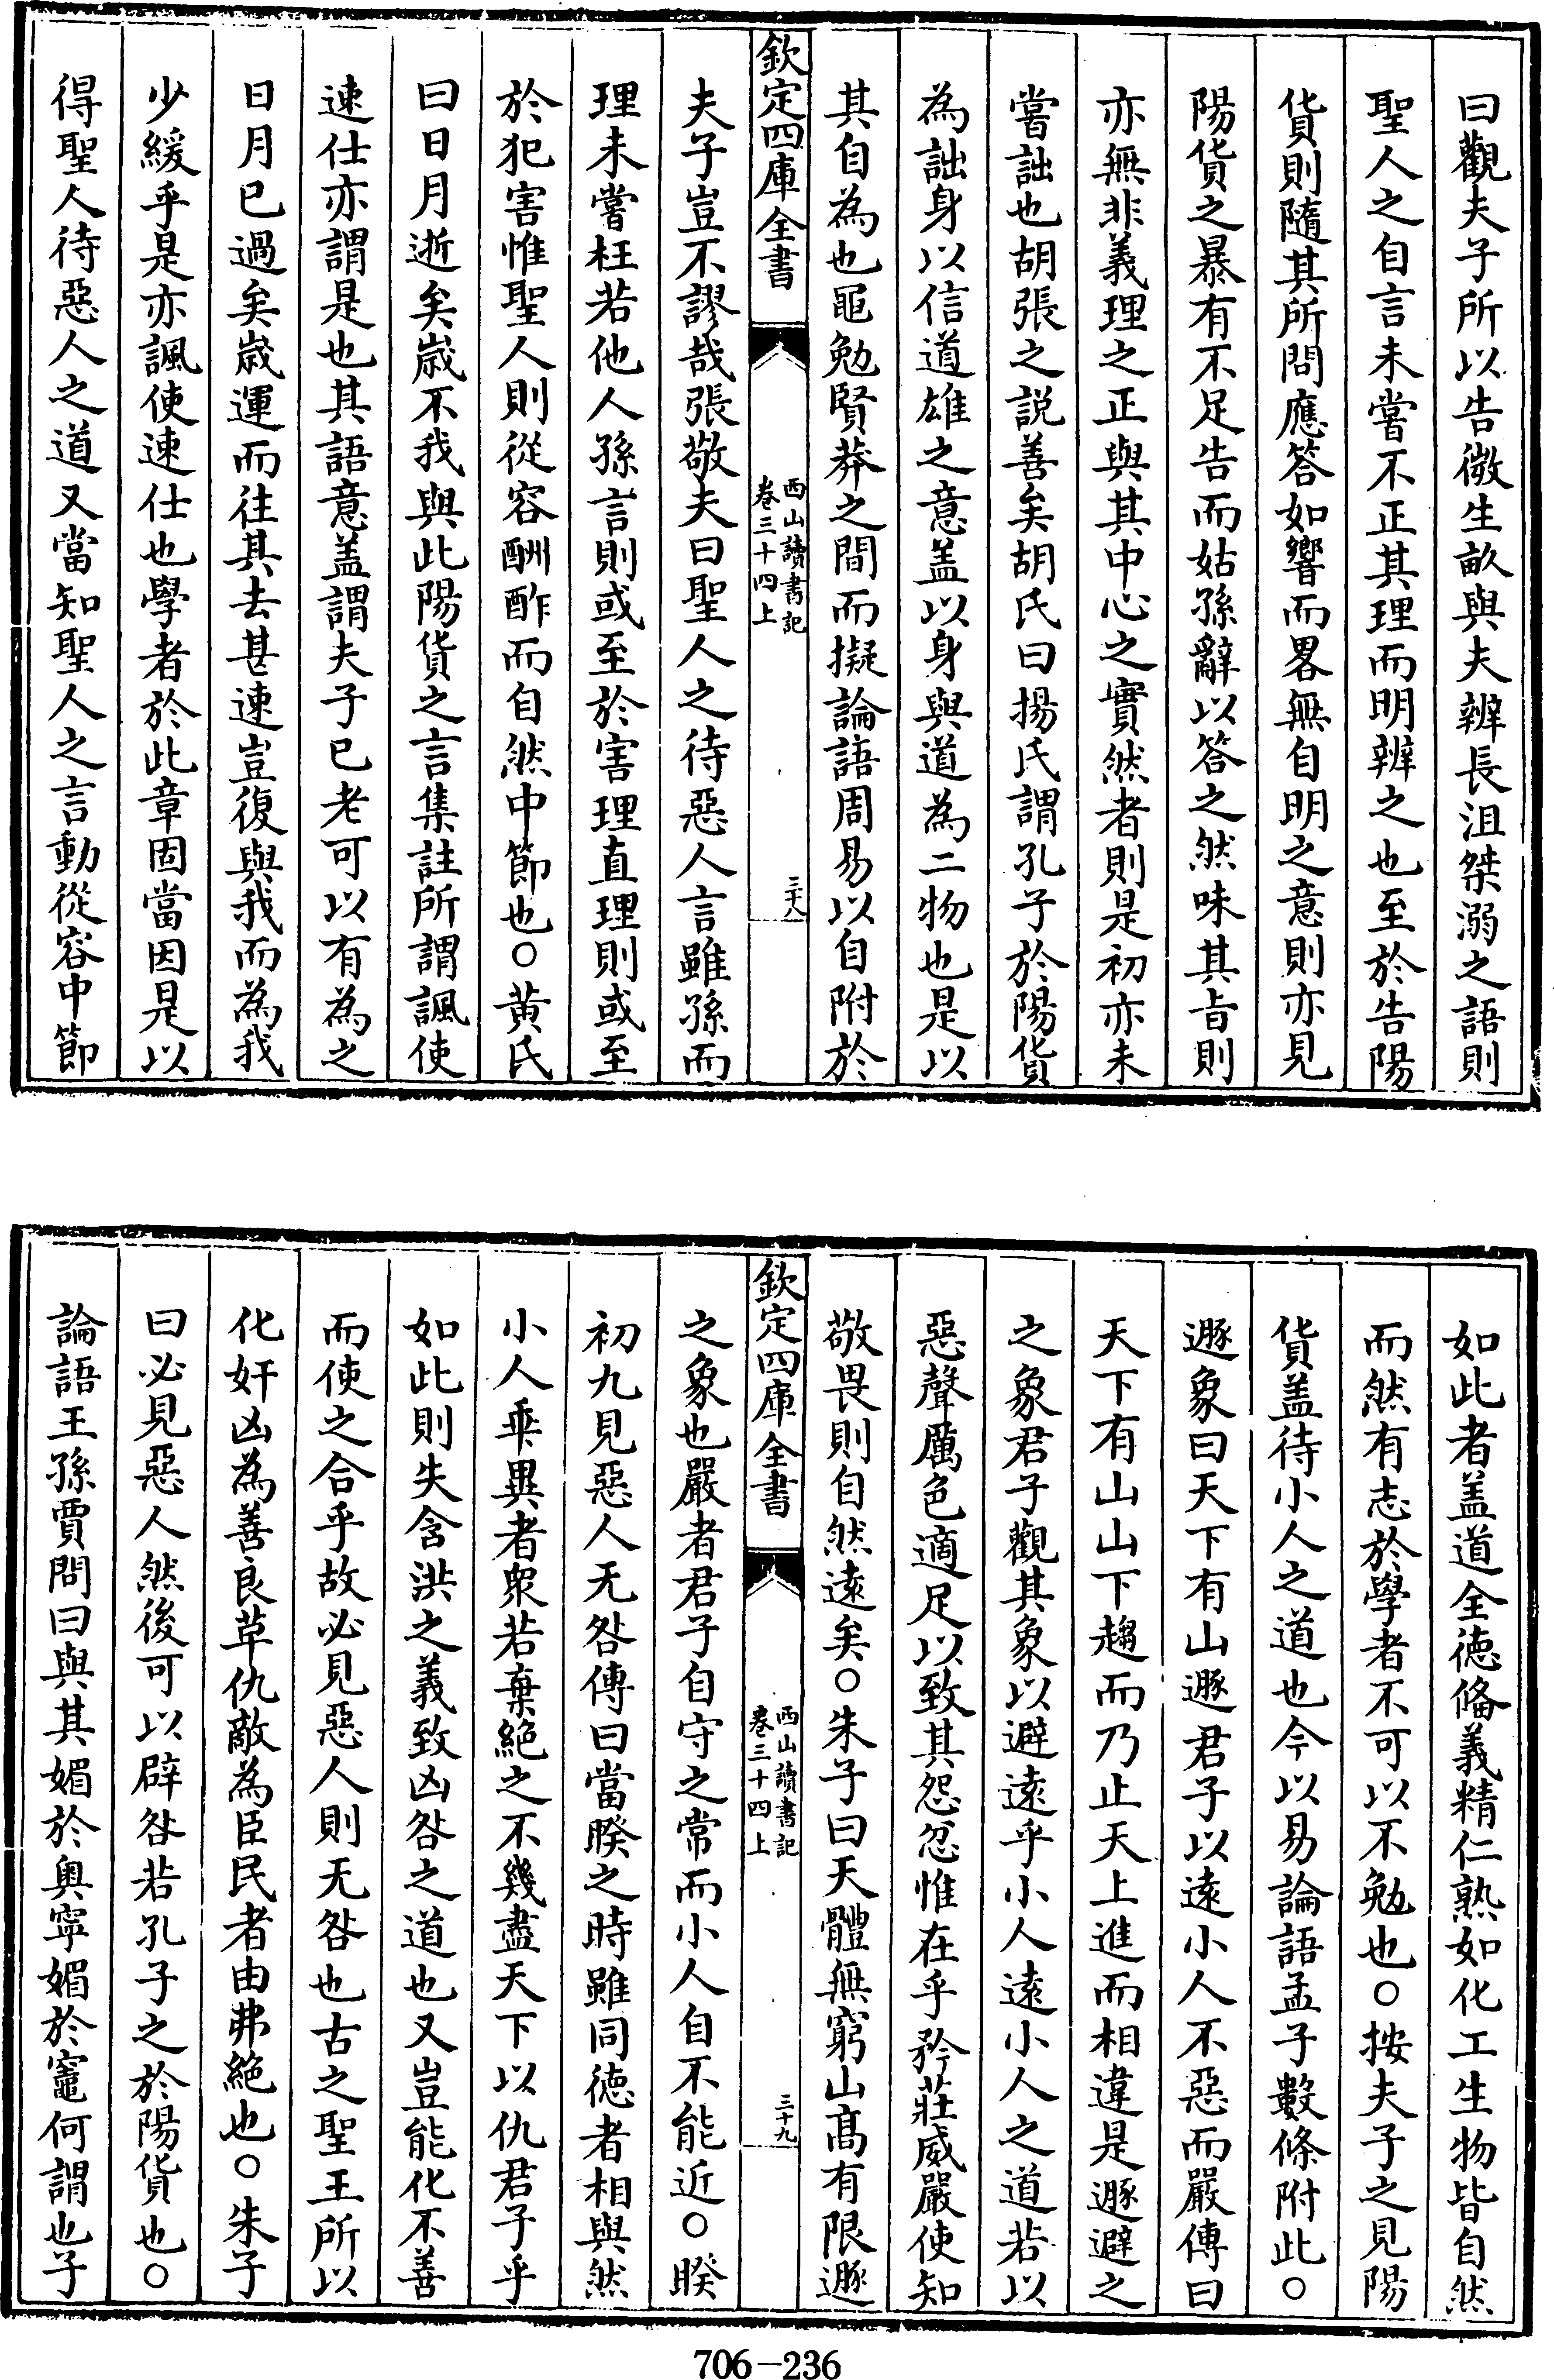 曰觀夫子所以告微生畝與夫辨長沮桀溺之語則
聖人之自言未嘗不正其理而明辨之也至於告陽
貨則隨其所問應答如響而畧無自明之意則亦見
陽貨之暴有不足告而姑孫辭以答之然味其㫖則
亦無非義理之正與其中心之實然者則是初亦未
嘗詘也胡張之説善矣胡氏曰揚氏謂孔子於陽貨
為詘身以信道雄之意盖以身與道為二物也是以
其自為也黽勉賢莽之間而擬論語周易以自附於
欽定四庫全書
西山讀書記
卷三十四上
三十八
夫子豈不謬哉張敬夫曰聖人之待惡人言雖孫而
理未嘗枉若他人孫言則或至於害理直理則或至
於犯害惟聖人則從容酬酢而自然中節也○黄氏
曰日月逝矣歲不我與此陽貨之言集註所謂諷使
速仕亦謂是也其語意盖謂夫子已老可以有為之
日月已過矣歲運而往其去甚速豈復與我而為我
少緩乎是亦諷使速仕也學者於此章固當因是以
得聖人待惡人之道又當知聖人之言動從容中節
如此者盖道全徳偹義精仁熟如化工生物皆自然
而然有志於學者不可以不勉也○按夫子之見陽
貨盖待小人之道也今以易論語孟子數條附此○
遯象曰天下有山遯君子以逺小人不惡而嚴傳曰
天下有山山下趨而乃止天上進而相違是遯避之
之象君子觀其象以避逺乎小人逺小人之道若以
惡聲厲色適足以致其怨忿惟在乎矜莊威嚴使知
敬畏則自然逺矣○朱子曰天體無窮山髙有限遯
欽定四庫全書
西山讀書記
卷三十四上
三十九
之象也嚴者君子自守之常而小人自不能近○睽
初九見惡人无咎傳曰當睽之時雖同徳者相與然
小人乖異者衆若棄絶之不幾盡天下以仇君子乎
如此則失含洪之義致凶咎之道也又豈能化不善
而使之合乎故必見惡人則无咎也古之聖王所以
化奸凶為善良革仇敵為臣民者由弗絶也○朱子
曰必見惡人然後可以辟咎若孔子之於陽貨也○
論語王孫賈問曰與其媚於奥寧媚於竈何謂也子
706—236